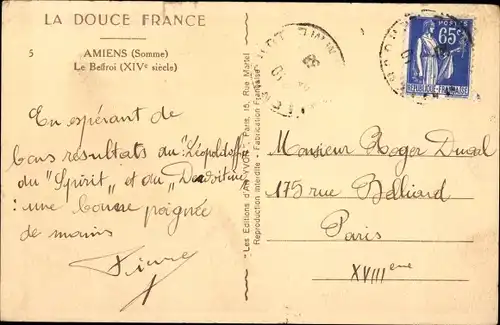 LA DOUCE FRANCE
5
AMIENS (Somme)
Le Beffroi (XIVe siècle)
En espérant de
bons resultats du "Léopoldoff"
du "Spirit" et du
: une bonne poignée
de mains
Les Editions d'Art YVON - Paris, 15, Rue Martel
Reproduction interdite - Fabrication Française
POSTES
65c
REPUBLIQUE FRANÇAISE
Monsieur Roger Duval
175 rue Belliard
Paris
XVIIIeme